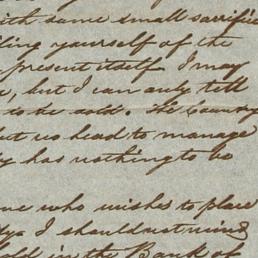 with some small sacrifice
yourself of the
present itself. I may
, but I can only tell
to be sold. The Country
but no head to manage
has nothing to be
who wishes to place
I should not mind
in the Bank of